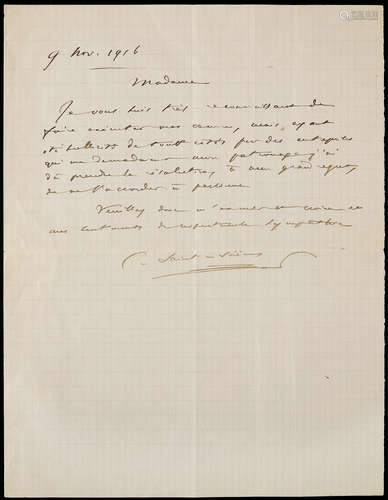 9 Nov. 1916
Madame
Je vous suis très reconnaissant de
faire exécuter mes œuvres, mais, ayant
été de tous côtés par des
qui me demandent mon patronage, j'ai
dû prendre la résolution, à mon grand regret,
de ne l'accorder à personne.
Veuillez donc m'excuser et croire à
mes sentiments de respectueuse sympathie
C. Saint-Saëns